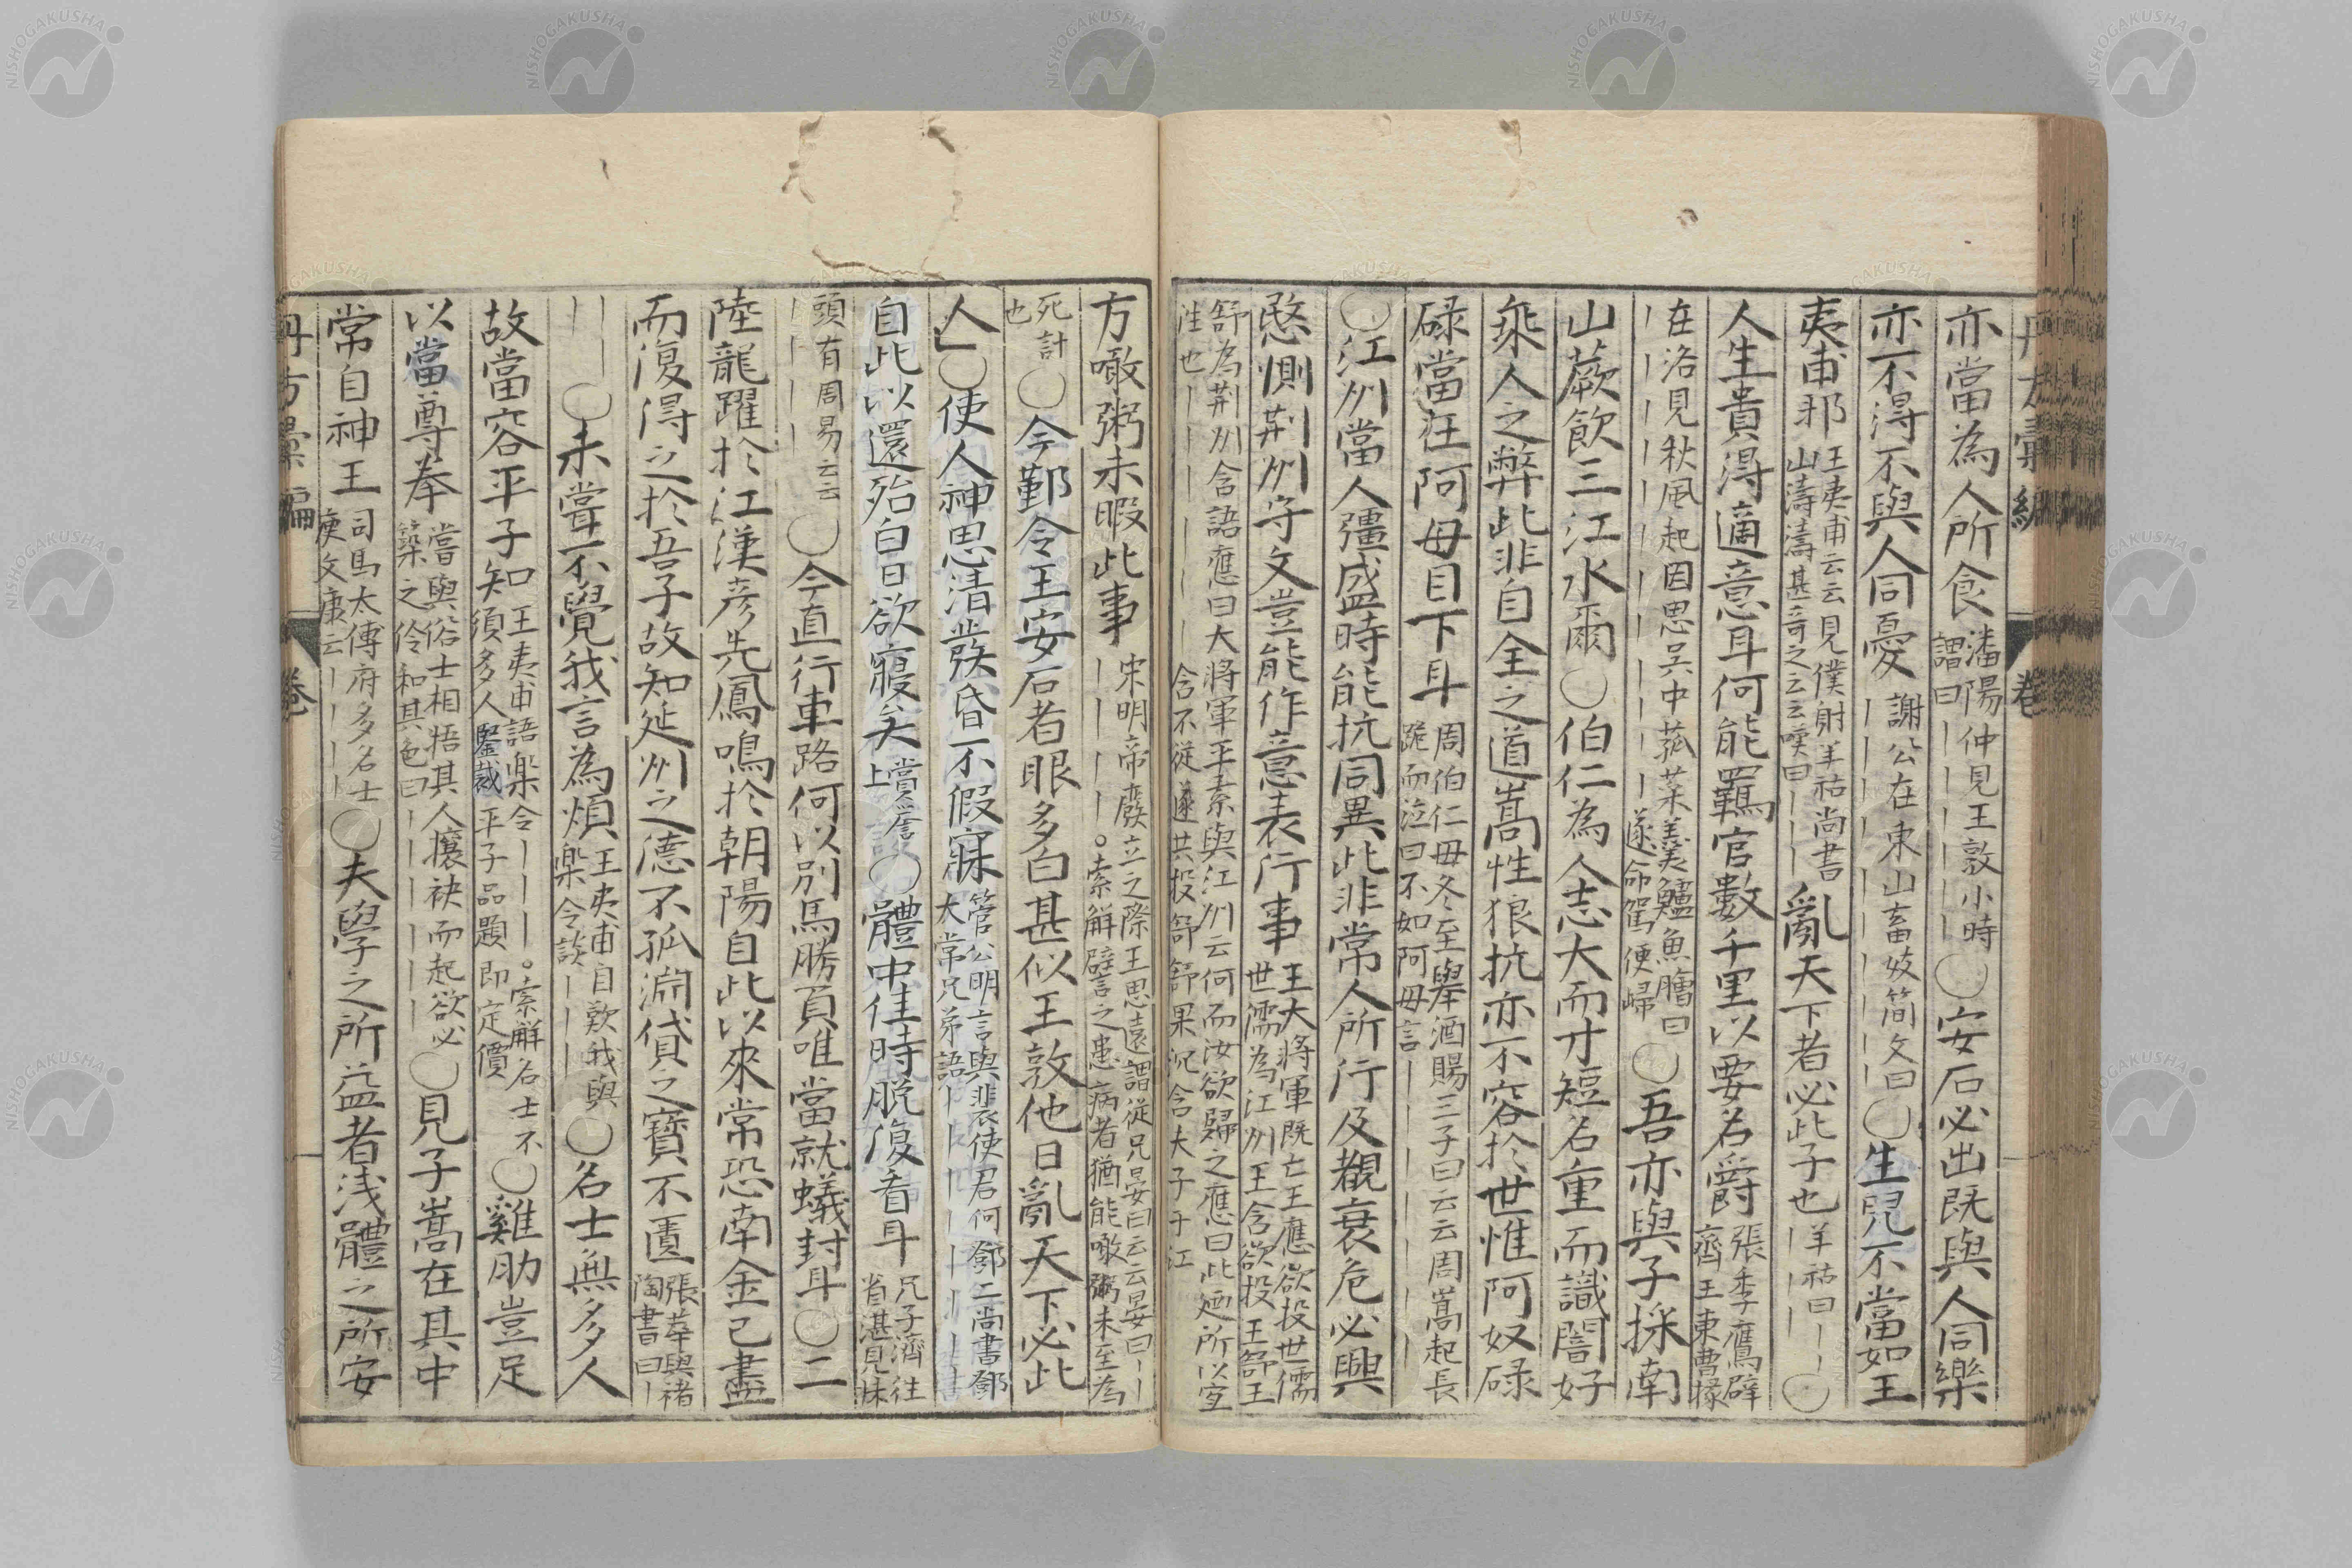 亦當為人所食潘陽仲見王敦小時謂曰｜｜｜｜｜〇安石必出既與人同樂
亦不得不與人同憂謝公在東山畜妓简文曰｜｜｜｜｜｜〇生兒不當如王
夷甫邪王夷甫云云見僕射羊祜尚書山濤濤甚奇之云云嘆曰｜｜｜亂天下者必此子也羊祜曰｜｜｜〇
人生貴得適意耳何能羈官數千里以要名爵張季鷹辟齊王東曹掾
在洛見秋風起因思吳中菰菜羹鱸魚膾曰｜｜｜｜｜｜｜遂命駕便歸〇吾亦與子採南
山蕨飲三江水爾〇伯仁為人志大而才短名重而識闇好
乘人之弊此非自全之道嵩性狼抗亦不容於世惟阿奴碌
碌當在阿母目下耳周伯仁母冬至舉酒賜三子曰云云周嵩起長跪而泣曰不如阿母言｜｜｜｜｜
〇江州當人彊盛時能抗同異此非常人所行及覩衰危必興
愍惻荆州守文豈能作意表行事王大將軍既亡王應欲投世儒世濡為江州王含欲投王舒王
舒為荆州含語應曰大將軍平素與江州云何而汝欲歸之應曰此廼所以宜往也｜｜｜｜｜含不從遂共投舒舒果沉含大子于江
方噉粥未暇此事宋明帝廢立之際王思遠謂從兄晏曰云云晏曰｜｜｜｜｜。索解譬之患病者猶能噉粥未至為
死計也〇今鄞令王安石者眼多白甚似王敦他日亂天下必此
人〇使人神思清發昏不假寐管公明言與裴使君何鄧二尚書鄧大常兄弟語｜｜｜｜｜
自此以還殆白日欲寢矣〇體中佳時脱復看耳兄子濟往省湛見牀
頭有周易云云｜｜｜｜〇今直行車路何以別馬勝負唯當就蟻封耳〇二
陸龍躍於江漢彦先鳳鳴於朝陽自此以來常恐南金已盡
而復得之於吾子故知延州之德不孤淵貸之寶不匱張華與褚陶書曰｜
｜｜〇未嘗不覺我言為煩王夷甫自歎我與樂令談｜｜〇名士無多人
故當容平子知王夷甫語樂令｜｜｜。索解名士不須多人鑒裁平子品題即定價〇雞肋豈足
以當尊拳嘗與俗士相牾其人攘袂而起欲必築之伶和其色曰｜｜｜｜｜〇見子嵩在其中
常自神王司馬太傅府多名士庾文康云｜｜｜｜〇夫學之所益者浅體之所安
丹方彙編 卷